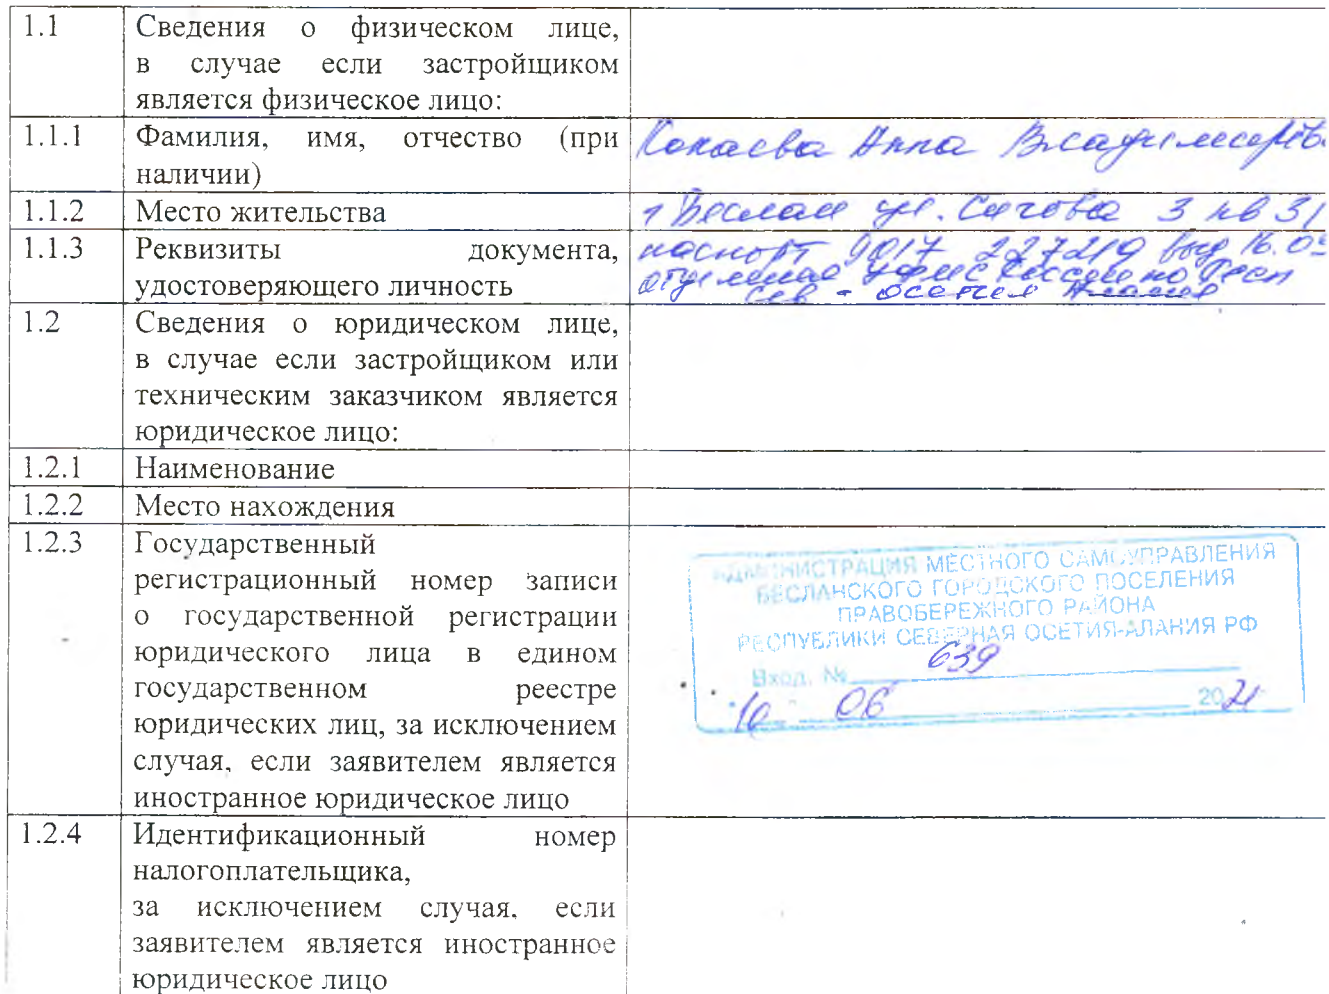 1.1 Сведения о физическом лице,
в случае если застройщиком
является физическое лицо:
1.1.1 Фамилия, имя, отчество (при
наличии)
Кокаева Анна Владимировн
1.1.2 Место жительства
г Беслан ул. Сигова 3 кв 31
1.1.3 Реквизиты документа,
удостоверяющего личность
паспорт 9017 227219 выд 16.0
отделение УФМС России по Респ
Сев - Осетия Алания
1.2 Сведения о юридическом лице,
в случае если застройщиком или
техническим заказчиком является
юридическое лицо:
1.2.1 Наименование
1.2.2 Место нахождения
1.2.3 Государственный
регистрационный номер записи
о государственной регистрации
юридического лица в едином
государственном реестре
юридических лиц, за исключением
случая, если заявителем является
иностранное юридическое лицо
АДМИНИСТРАЦИЯ МЕСТНОГО САМОУПРАВЛЕНИЯ
БЕСЛАНСКОГО ГОРОДСКОГО ПОСЕЛЕНИЯ
ПРАВОБЕРЕЖНОГО РАЙОНА
РЕСПУБЛИКИ СЕВЕРНАЯ ОСЕТИЯ-АЛАНИЯ РФ
Вход. № 639
10 06 2021
1.2.4 Идентификационный номер
налогоплательщика,
за исключением случая, если
заявителем является иностранное
юридическое лицо